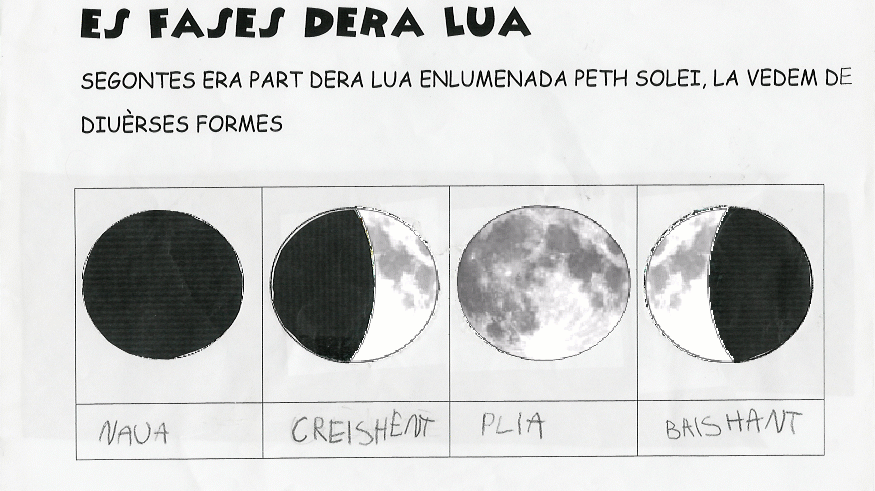 ES FASES DERA LUA
SEGONTES ERA PART DERA LUA ENLUMENADA PETH SOLEI, LA VEDEM DE
DIUÈRSES FORMES
NAUA CREISHÈNT PLIA BAISHANT